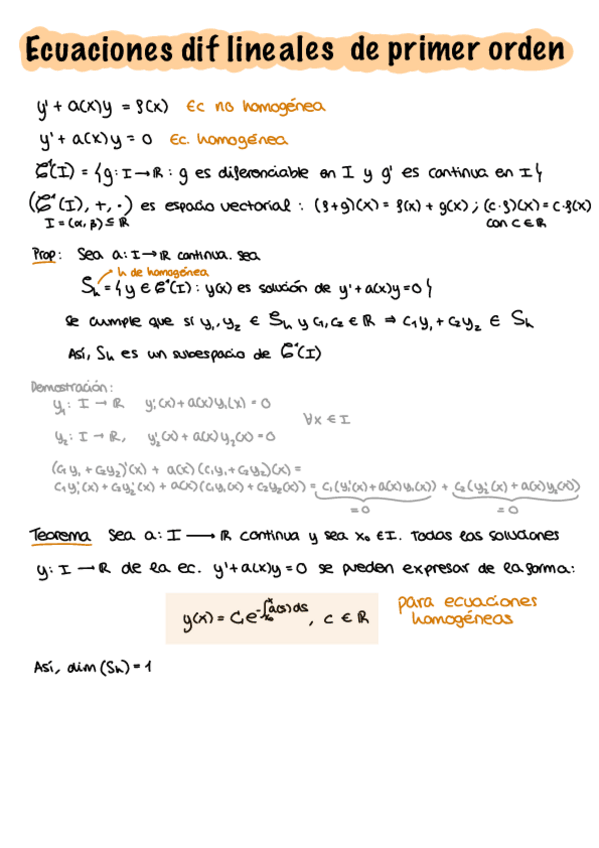 Ecuaciones dif lineales de primer orden
y' + a(x)y = f(x) Ec no homogénea
y' + a(x)y = 0 Ec. homogénea
C¹(I) = {g: I → ℝ : g es diferenciable en I y g' es continua en I}
(C¹(I), +, ·) es espacio vectorial : (f+g)(x) = f(x) + g(x) ; (c·f)(x) = c·f(x)
I = (α, β) ⊆ ℝ con c ∈ ℝ
Prop: Sea a: I → ℝ continua. sea
h de homogénea
Sₕ = {y ∈ C¹(I) : y(x) es solución de y' + a(x)y = 0}
Se cumple que si y₁, y₂ ∈ Sₕ y c₁, c₂ ∈ ℝ ⇒ c₁y₁ + c₂y₂ ∈ Sₕ
Así, Sₕ es un subespacio de C¹(I)
Demostración:
y₁: I → ℝ y₁'(x) + a(x)y₁(x) = 0
∀x ∈ I
y₂: I → ℝ, y₂'(x) + a(x)y₂(x) = 0
(c₁y₁ + c₂y₂)'(x) + a(x)(c₁y₁ + c₂y₂)(x) =
c₁y₁'(x) + c₂y₂'(x) + a(x)(c₁y₁(x) + c₂y₂(x)) = c₁(y₁'(x) + a(x)y₁(x)) + c₂(y₂'(x) + a(x)y₂(x))
= 0 = 0
Teorema Sea a: I → ℝ continua y sea x₀ ∈ I. Todas las soluciones
y: I → ℝ de la ec. y' + a(x)y = 0 se pueden expresar de la forma:
y(x) = C e^{-∫_{x₀}^{x} a(s)ds}, c ∈ ℝ para ecuaciones
homogéneas
Así, dim(Sₕ) = 1